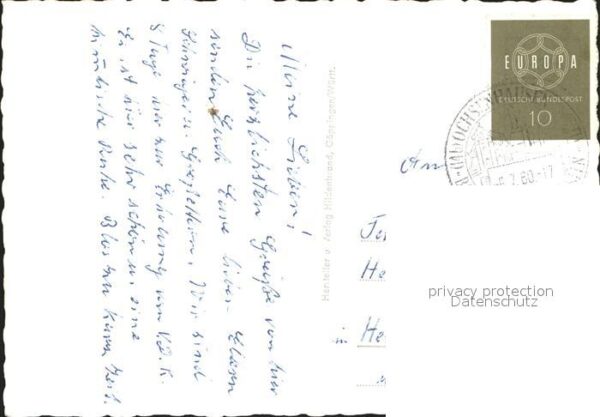 Meine Lieben!
Die herzlichsten Grüße von hier
senden Euch Eure lieben
Großeltern. Wir sind
8 Tage hier zur Erholung von V.d.K.
Es ist hier sehr schön u. eine
himmlische Ruhe. Blos kurze Zeit.
Hersteller u. Verlag Hildenbrand, Göppingen/Württ.
EUROPA
DEUTSCHE BUNDESPOST
10
OCHSENHAUSEN
-6.7.60-17
An
Fa
He
He
privacy protection
Datenschutz